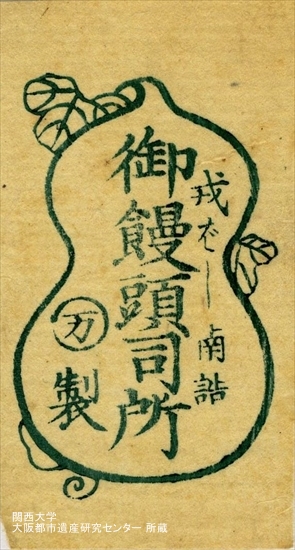 戎ばし南詰
御饅頭司所
万製
関西大学
大阪都市遺産研究センター 所蔵